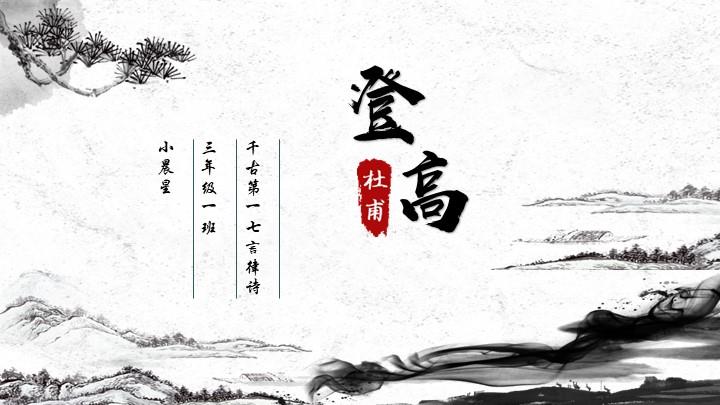 登高
杜甫
千古第一七言律诗
三年级一班
小晨星